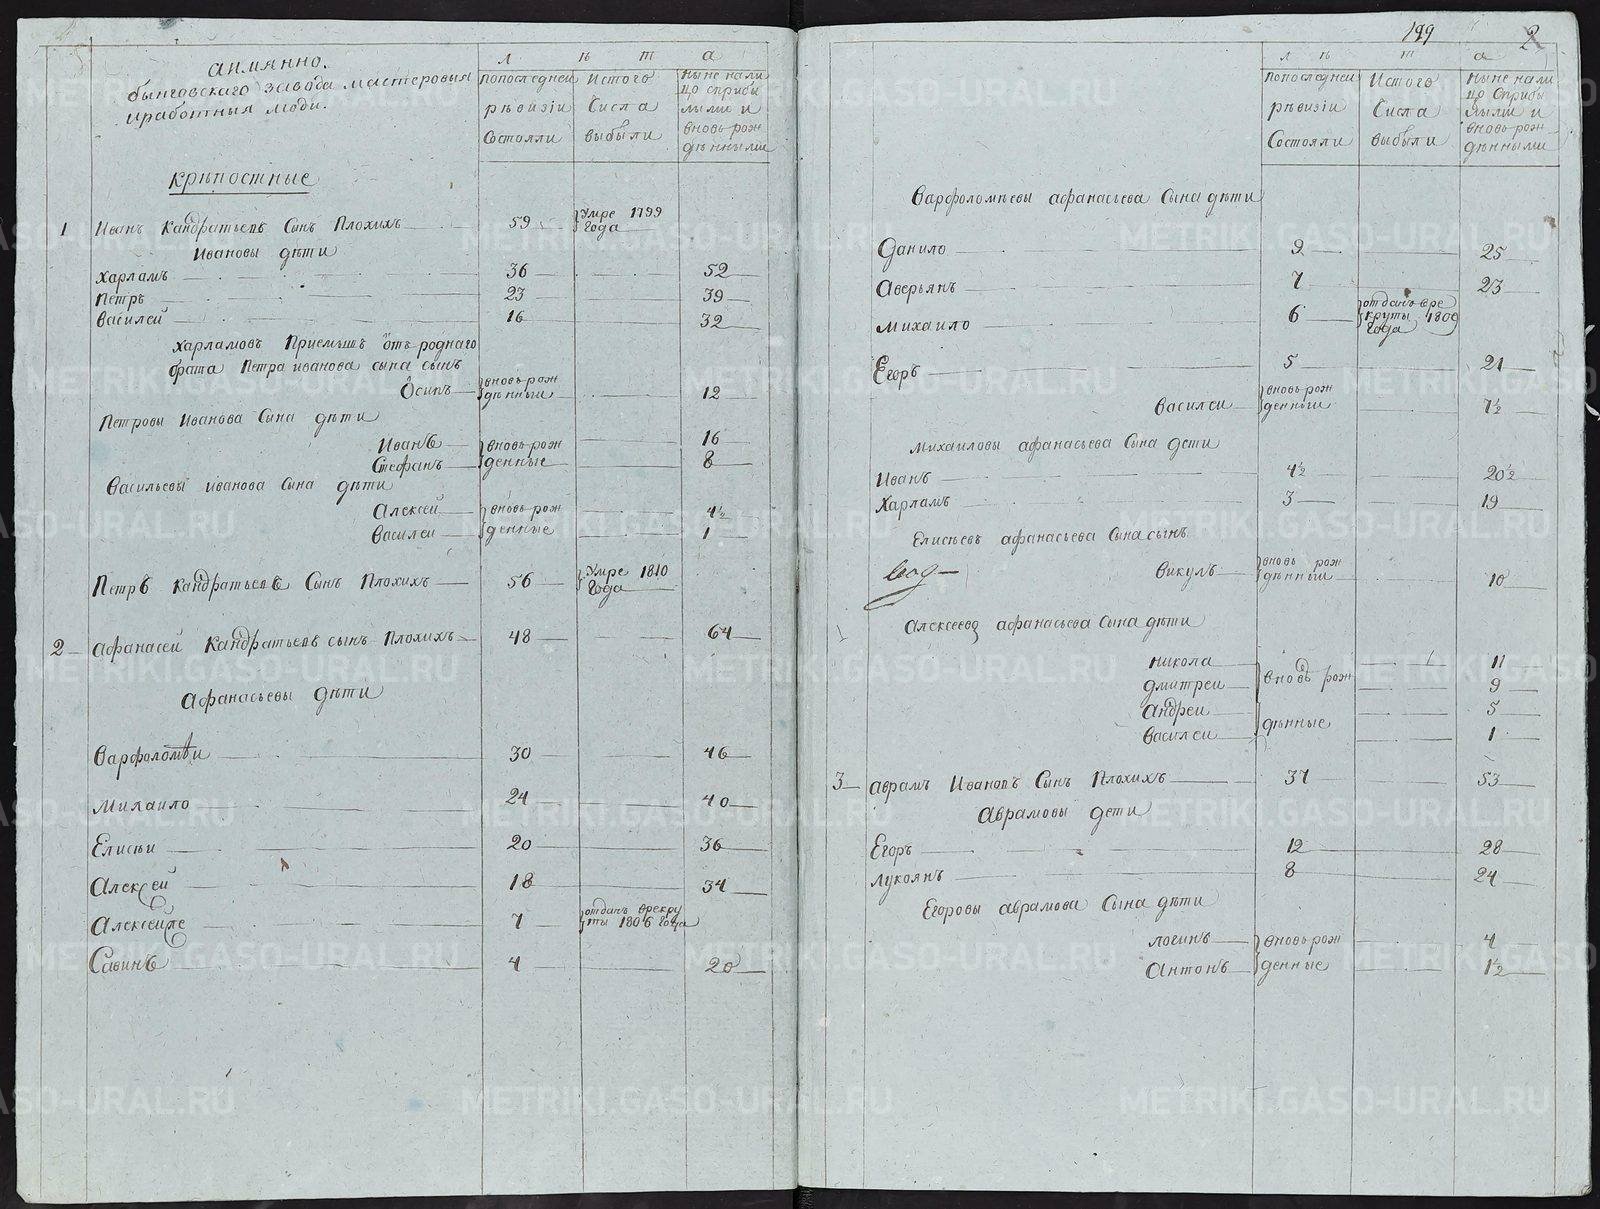 аимянно.
бынговскаго завода мастеровыя
иработныя люди.
лѣта
попоследней рѣвизіи Состояли
Истого Числа выбыли
Ныне нали цо Сприбы лыми и вновь рож дѣнными
крѣпостные
1 Иванъ Кандратьевъ Сынъ Плохихъ 59 Умре 1799 Года
Ивановы дѣти
Харламъ 36 52
Петръ 23 39
Василей 16 32
Харламовъ Приемышъ отъ роднаго
брата Петра иванова сына сынъ
Осипъ вновь рож дѣнный 12
Петровы Иванова Сына дѣти
Иванъ вновь рож 16
Стефанъ денные 8
Васильевы иванова Сына дѣти
Алексей вновь рож 4½
Василеи денные 1
Петръ Кандратьевъ Сынъ Плохихъ 56 Умре 1810 Года
2 Афанасей Кандратьевъ сынъ Плохихъ 48 64
Афанасьевы дѣти
Варфоломѣи 30 46
Михаило 24 40
Елисѣи 20 36
Алексей 18 34
Алексейже 7 отданъ врекру ты 1806 Года
Савинъ 4 20
199 2
лѣта
попоследней рѣвизіи Состояли
Истого Числа выбыли
Ныне нали цо Сприбы лыми и вновь рож дѣнными
Варфоломѣевы афанасьева Сына дѣти
Данило 9 25
Аверьянъ 7 23
Михаило 6 отданъ вре круты 1809 Года
Егоръ 5 21
Василеи вновь рож денный 1½
Михаиловы афанасьева Сына дети
Иванъ 4½ 20½
Харламъ 3 19
Елисѣевъ афанасьева Сына сынъ
Викулъ вновь рож дѣнный 10
Алексеевы афанасьева Сына дѣти
Никола вновь рож 11
Дмитреи 9
Андреи дѣнные 5
Василеи 1
3 Аврамъ Ивановъ Сынъ Плохихъ 37 53
Аврамовы дети
Егоръ 12 28
Лукоянъ 8 24
Егоровы аврамова Сына дѣти
Логинъ вновь рож 4
Антонъ денные 1½
METRIKI.GASO-URAL.RU